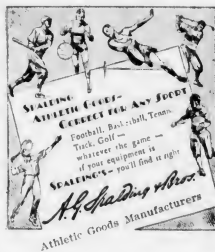 SPALDING
ATHLETIC GOODS—
CORRECT FOR ANY SPORT
Football, Basketball, Tennis
Track, Golf —
whatever the game —
if your equipment is
SPALDING'S— you'll find it right
A.G. Spalding & Bros.
Athletic Goods Manufacturers